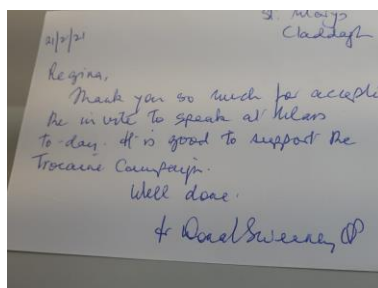 St. Marys
Claddagh
21/2/21
Regina,
Thank you so much for accepti
the invite to speak at Mass
to-day. It is good to support the
Trocaire Campaign.
Well done.
fr Donal Sweeney OP